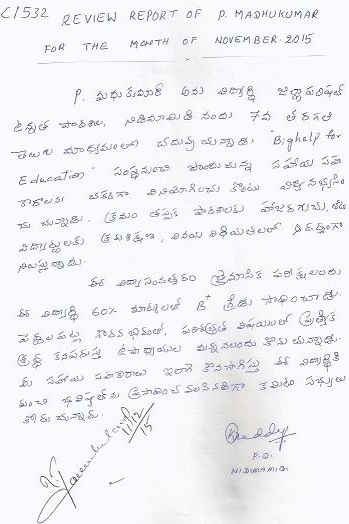 C1532
REVIEW REPORT OF P. MADHUKUMAR
FOR THE MONTH OF NOVEMBER-2015
P. మధుకుమార్ అను విద్యార్థి జిల్లాపరిషత్
ఉన్నత పాఠశాల, నిడిమామిడి నందు 7వ తరగతి
తెలుగు మాధ్యమంలో చదువుచున్నాడు. "Bighelp for
Education" సంస్థనుంచి పొందుచున్న సహాయ సహ
కారాలను చక్కగా వినియోగించు కొంటు విద్యనభ్యసిం
చు చున్నాడు. క్రమం తప్పక పాఠశాలకు హాజరగుచూ,
విద్యార్థులకు క్రమశిక్షణ, వినయ విధేయతలలో ఆదర్శంగా
నిలుస్తున్నాడు.
ఈ విద్యాసంవత్సరం త్రైమాసిక పరీక్షలందు
ఈ విద్యార్థి 60% మార్కులతో B+ గ్రేడు సాధించాడు.
పెద్దలపట్ల గౌరవభావంతో, పరిశుభ్రత విషయంలో ప్రత్యేక
శ్రద్ధ కనపరుస్తూ ఉపాధ్యాయుల మన్ననలందు కొను చున్నాడు.
మీ సహాయ సహకారాలు ఇలాగే కొనసాగిస్తూ ఈ విద్యార్థికి
మంచి భవిష్యత్ ను ప్రసాదించవలసినదిగా కమిటీ సభ్యులు
కోరు చున్నారు.
11/12/15
P.D.
NIDIMAMIDI